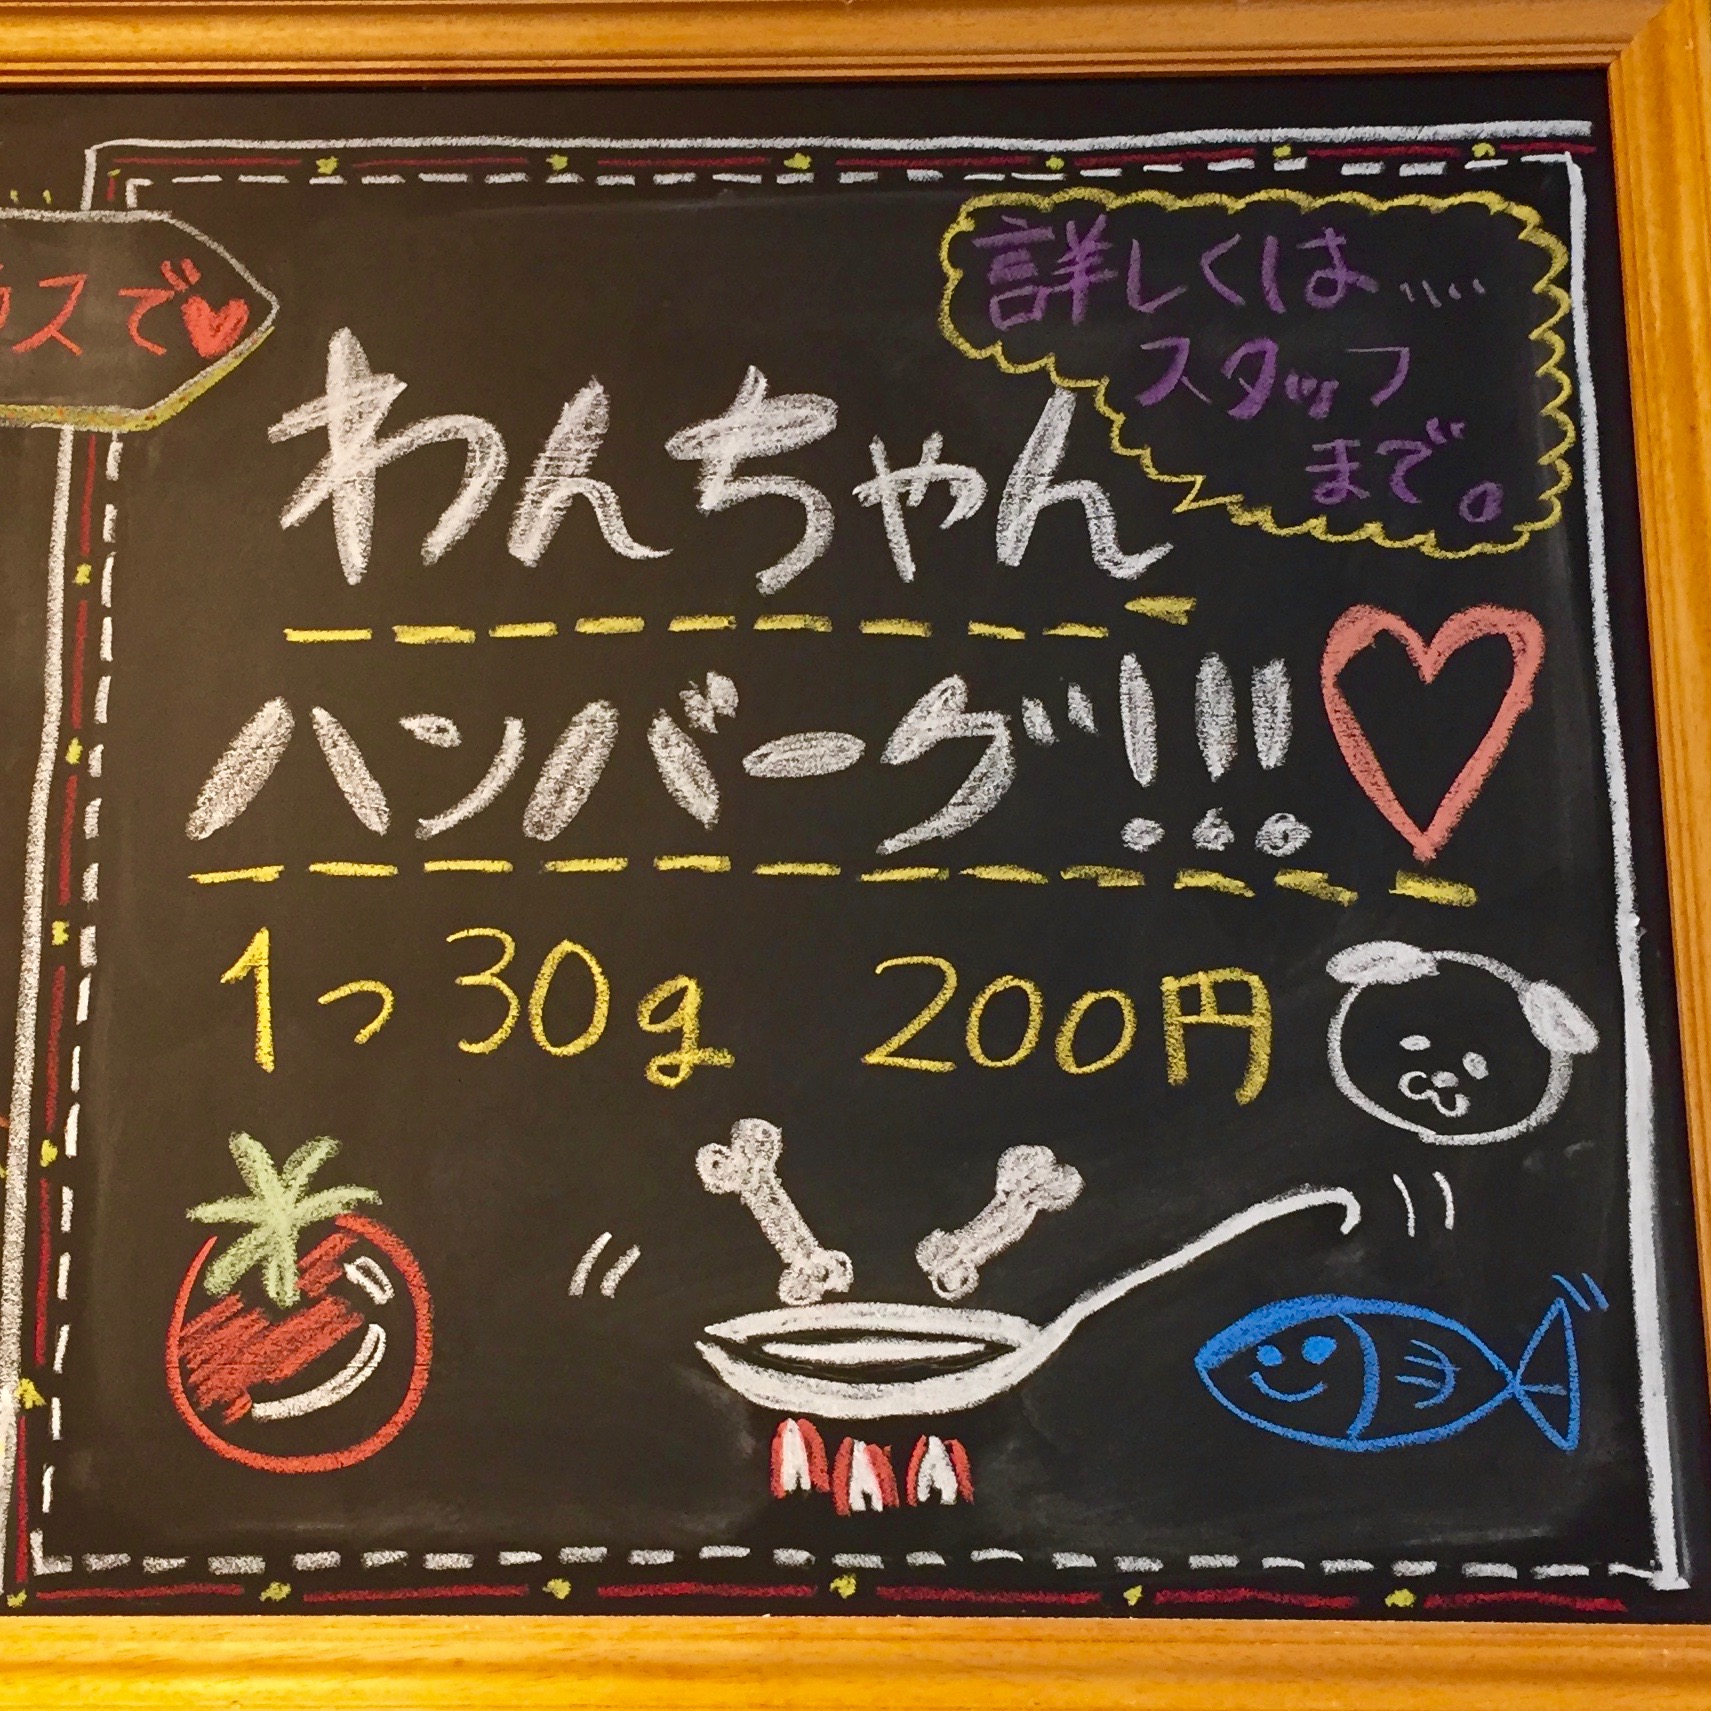 スで
詳しくは....
スタッフ
まで。
わんちゃん
ハンバーグ!!!
1つ 30g 200円